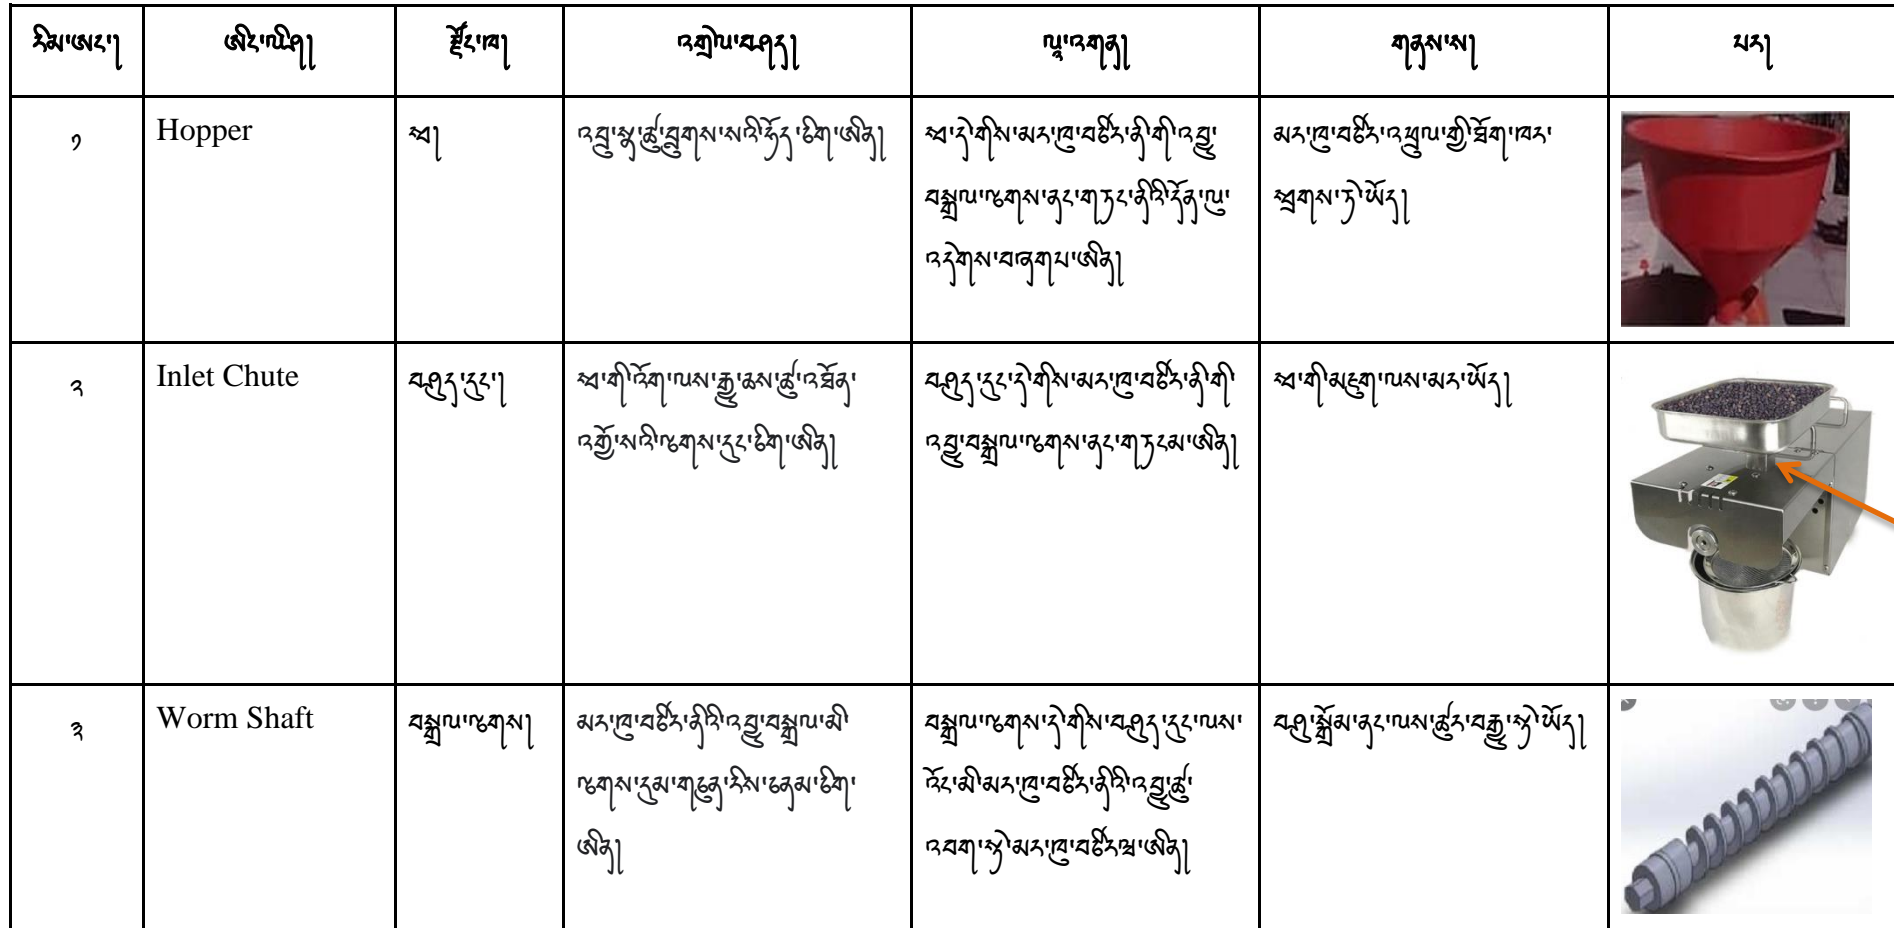 རིམ་ཨང་།
ཨིང་ལིཤ།
རྫོང་ཁ།
འགྲེལ་བཤད།
ལཱ་འགན།
གནས་ས།
པར།
༡
Hopper
ཝ།
འབྲུ་སྣ་ཚུ་བླུགས་སའི་ཧོད་ཅིག་ཨིན།
ཝ་དེ་གིས་མར་ཁུ་བཙིར་ནི་གི་འབྲུ་
བསྒྲལ་ལྕགས་ནང་གཏང་ནིའི་དོན་ལུ་
འདེགས་བཞགཔ་ཨིན།
མར་ཁུ་བཙིར་འཕྲུལ་གྱི་ཐོག་ཁར་
སྦྲགས་ཏེ་ཡོད།
༢
Inlet Chute
བཤུད་དུང་།
ཝ་གི་འོག་ལས་རྒྱུ་ཆས་ཚུ་འཐོན་
འགྱོ་སའི་ལྕགས་དུང་ཅིག་ཨིན།
བཤུད་དུང་དེ་གིས་མར་ཁུ་བཙིར་ནི་གི་
འབྲུ་བསྒྲལ་ལྕགས་ནང་གཏངམ་ཨིན།
ཝ་གི་མཇུག་ལས་མར་ཡོད།
༣
Worm Shaft
བསྒྲལ་ལྕགས།
མར་ཁུ་བཙིར་ནིའི་འབྲུ་བསྒྲལ་མི་
ལྕགས་དུམ་གཅུན་རིས་ཅནམ་ཅིག་
ཨིན།
བསྒྲལ་ལྕགས་དེ་གིས་བཤུད་དུང་ལས་
འོང་མི་མར་ཁུ་བཙིར་ནིའི་འབྲུ་ཚུ་
འབག་སྟེ་མར་ཁུ་བཙིརཝ་ཨིན།
བཤུ་སྒྲོམ་ནང་ལས་ཚུར་བརྒྱུ་སྟེ་ཡོད།